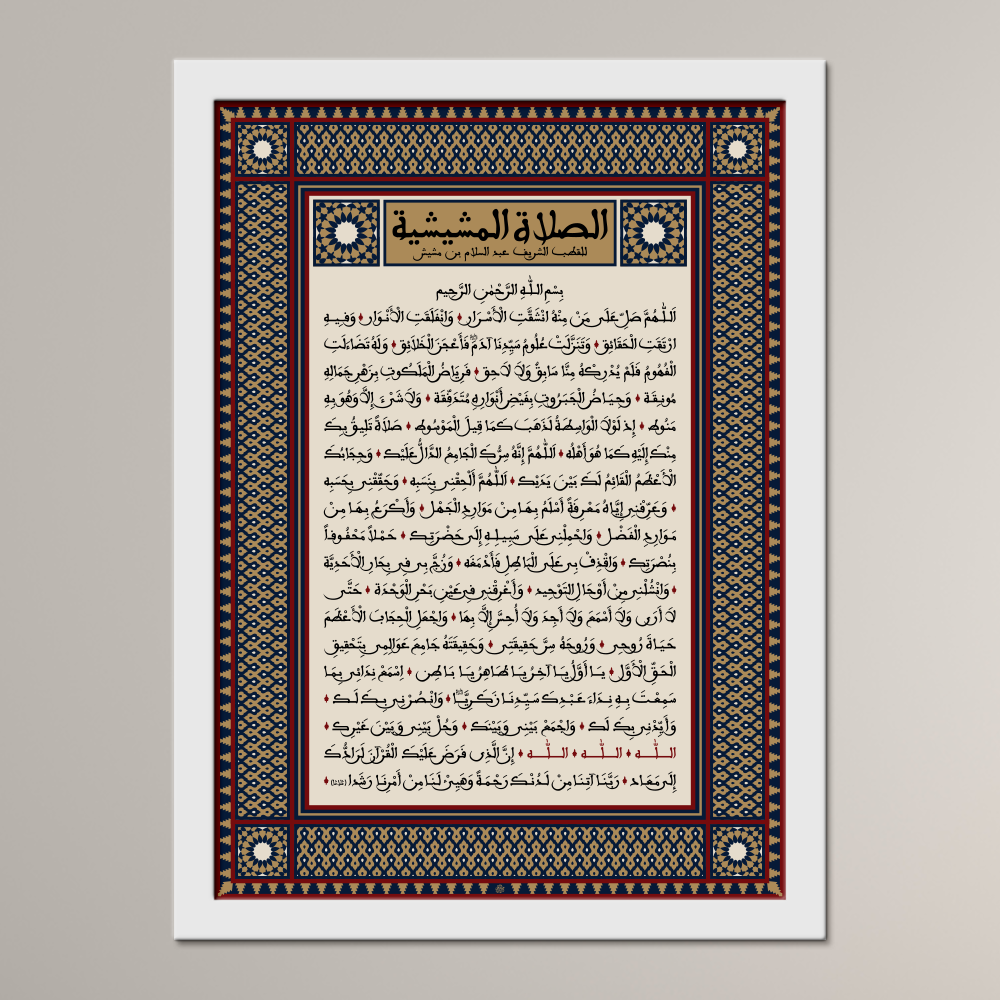 الصلاة المشيشية
للقطب الشريف عبد السلام بن مشيش
بِسْمِ اللَّهِ الرَّحْمٰنِ الرَّحِيمِ
اَللَّهُمَّ صَلِّ عَلَى مَنْ مِنْهُ انْشَقَّتِ الْأَسْرَارُ ♦ وَانْفَلَقَتِ الْأَنْوَارُ ♦ وَفِيهِ
ارْتَقَتِ الْحَقَائِقُ ♦ وَتَنَزَّلَتْ عُلُومُ سَيِّدِنَا آدَمَ فَأَعْجَزَ الْخَلَائِقَ ♦ وَلَهُ تَضَاءَلَتِ
الْفُهُومُ فَلَمْ يُدْرِكْهُ مِنَّا سَابِقٌ وَلَا لَاحِقٌ ♦ فَرِيَاضُ الْمَلَكُوتِ بِزَهْرِ جَمَالِهِ
مُونِقَةٌ ♦ وَحِيَاضُ الْجَبَرُوتِ بِفَيْضِ أَنْوَارِهِ مُتَدَفِّقَةٌ ♦ وَلَا شَيْءَ إِلَّا وَهُوَ بِهِ
مَنُوطٌ ♦ إِذْ لَوْلَا الْوَاسِطَةُ لَذَهَبَ كَمَا قِيلَ الْمَوْسُوطُ ♦ صَلَاةً تَلِيقُ بِكَ
مِنْكَ إِلَيْهِ كَمَا هُوَ أَهْلُهُ ♦ اَللَّهُمَّ إِنَّهُ سِرُّكَ الْجَامِعُ الدَّالُّ عَلَيْكَ ♦ وَحِجَابُكَ
الْأَعْظَمُ الْقَائِمُ لَكَ بَيْنَ يَدَيْكَ ♦ اَللَّهُمَّ أَلْحِقْنِي بِنَسَبِهِ ♦ وَحَقِّقْنِي بِحَسَبِهِ
♦ وَعَرِّفْنِي إِيَّاهُ مَعْرِفَةً أَسْلَمُ بِهَا مِنْ مَوَارِدِ الْجَهْلِ ♦ وَأَكْرَعُ بِهَا مِنْ
مَوَارِدِ الْفَضْلِ ♦ وَاحْمِلْنِي عَلَى سَبِيلِهِ إِلَى حَضْرَتِكَ ♦ حَمْلاً مَحْفُوفاً
بِنُصْرَتِكَ ♦ وَاقْذِفْ بِي عَلَى الْبَاطِلِ فَأَدْمَغَهُ ♦ وَزُجَّ بِي فِي بِحَارِ الْأَحَدِيَّةِ
♦ وَانْشُلْنِي مِنْ أَوْحَالِ التَّوْحِيدِ ♦ وَأَغْرِقْنِي فِي عَيْنِ بَحْرِ الْوَحْدَةِ ♦ حَتَّى
لَا أَرَى وَلَا أَسْمَعَ وَلَا أَجِدَ وَلَا أُحِسَّ إِلَّا بِهَا ♦ وَاجْعَلِ الْحِجَابَ الْأَعْظَمَ
حَيَاةَ رُوحِي ♦ وَرُوحَهُ سِرَّ حَقِيقَتِي ♦ وَحَقِيقَتَهُ جَامِعَ عَوَالِمِي بِتَحْقِيقِ
الْحَقِّ الْأَوَّلِ ♦ يَا أَوَّلُ يَا آخِرُ يَا ظَاهِرُ يَا بَاطِنُ ♦ اِسْمَعْ نِدَائِي بِمَا
سَمِعْتَ بِهِ نِدَاءَ عَبْدِكَ سَيِّدِنَا زَكَرِيَّا ♦ وَانْصُرْنِي بِكَ لَكَ ♦
وَأَيِّدْنِي بِكَ لَكَ ♦ وَاجْمَعْ بَيْنِي وَبَيْنَكَ ♦ وَحُلْ بَيْنِي وَبَيْنَ غَيْرِكَ ♦
اللَّه ♦ اللَّه ♦ اللَّه ♦ إِنَّ الَّذِي فَرَضَ عَلَيْكَ الْقُرْآنَ لَرَادُّكَ
إِلَى مَعَادٍ ♦ رَبَّنَا آتِنَا مِنْ لَدُنْكَ رَحْمَةً وَهَيِّئْ لَنَا مِنْ أَمْرِنَا رَشَدا (ثلاثا) ♦